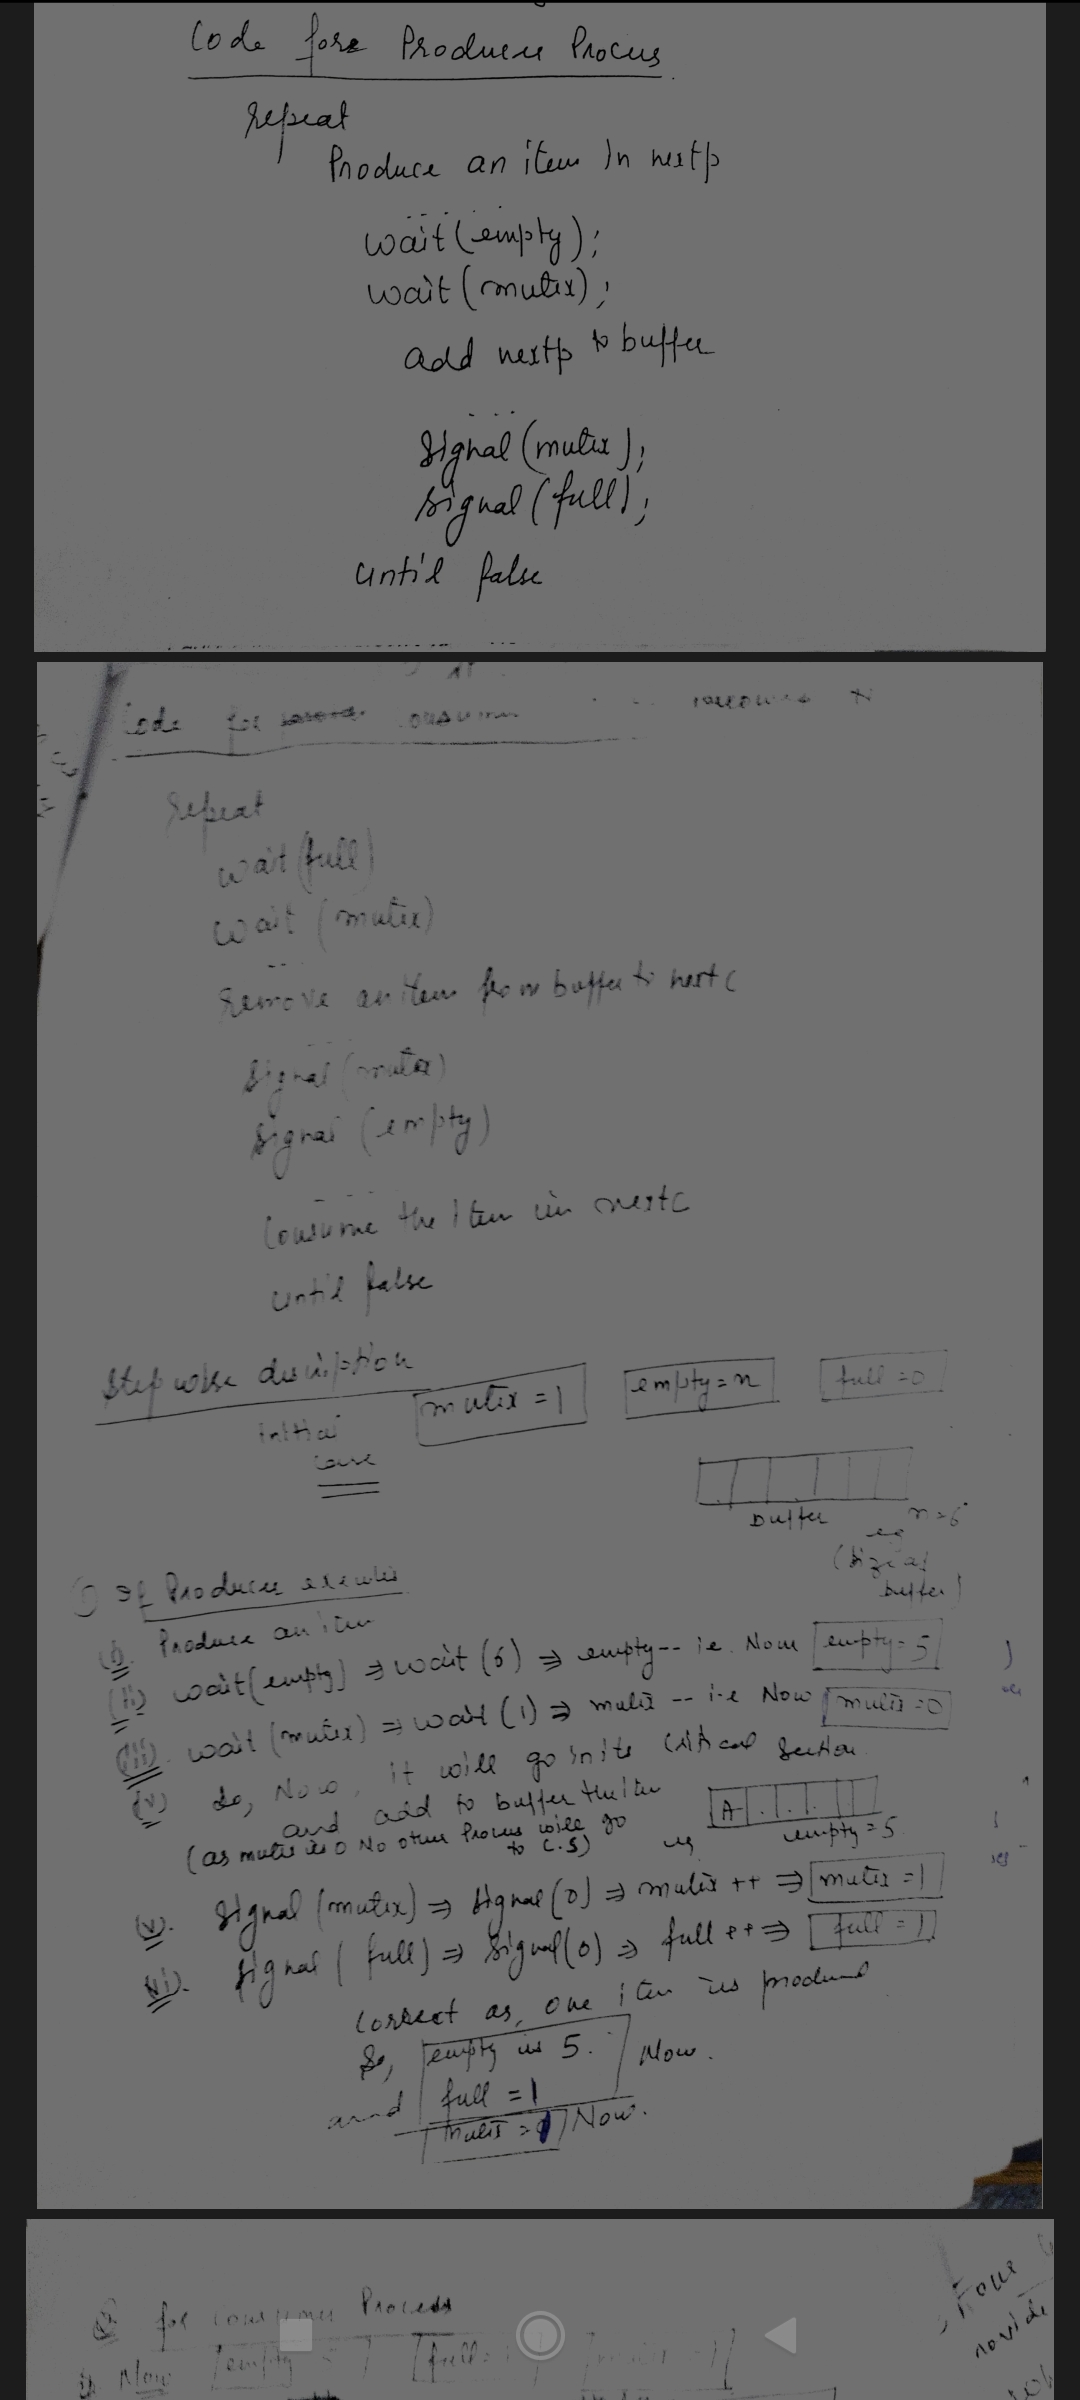 Code for Producer Process
repeat
Produce an item in nextp
...
wait(empty);
wait(mutex);
add nextp to buffer
...
signal(mutex);
signal(full);
until false
Code for consumer
repeat
wait(full)
wait (mutex)
...
remove an item from buffer to nextc
...
signal (mutex)
signal (empty)
...
consume the item in nextc
until false
Step wise description
initial
case
mutex = 1
empty = n
full = 0
Buffer
n = 6
eg
(size of
buffer)
① If Producer executes
(i) Produce an item
(ii) wait(empty) ⇒ wait (6) ⇒ empty-- i.e. Now empty = 5
(iii) wait (mutex) ⇒ wait (1) ⇒ mutex -- i.e Now mutex = 0
(iv) So, Now, it will go into critical section
and add to buffer the item
A
empty = 5
(as mutex is 0 No other Process will go
to C.S)
eg
(v). signal (mutex) ⇒ signal (0) ⇒ mutex ++ ⇒ mutex = 1
(vi). signal ( full) ⇒ signal(0) ⇒ full ++ ⇒ full = 1
Correct as, one item is produced
So, empty is 5. Now.
and full = 1
mutex = 1 Now.
② for consumer Process
Now empty full